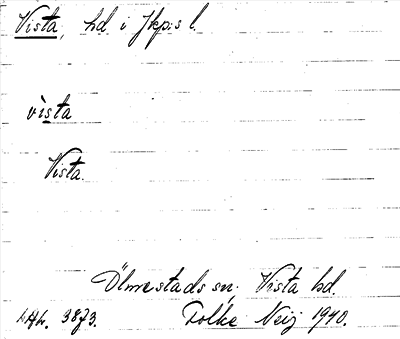 Vista, hd i Jkp:s l.
vìsta
Vista.
Ölmestads sn. Vista hd.
3873. Folke Neij 1940.